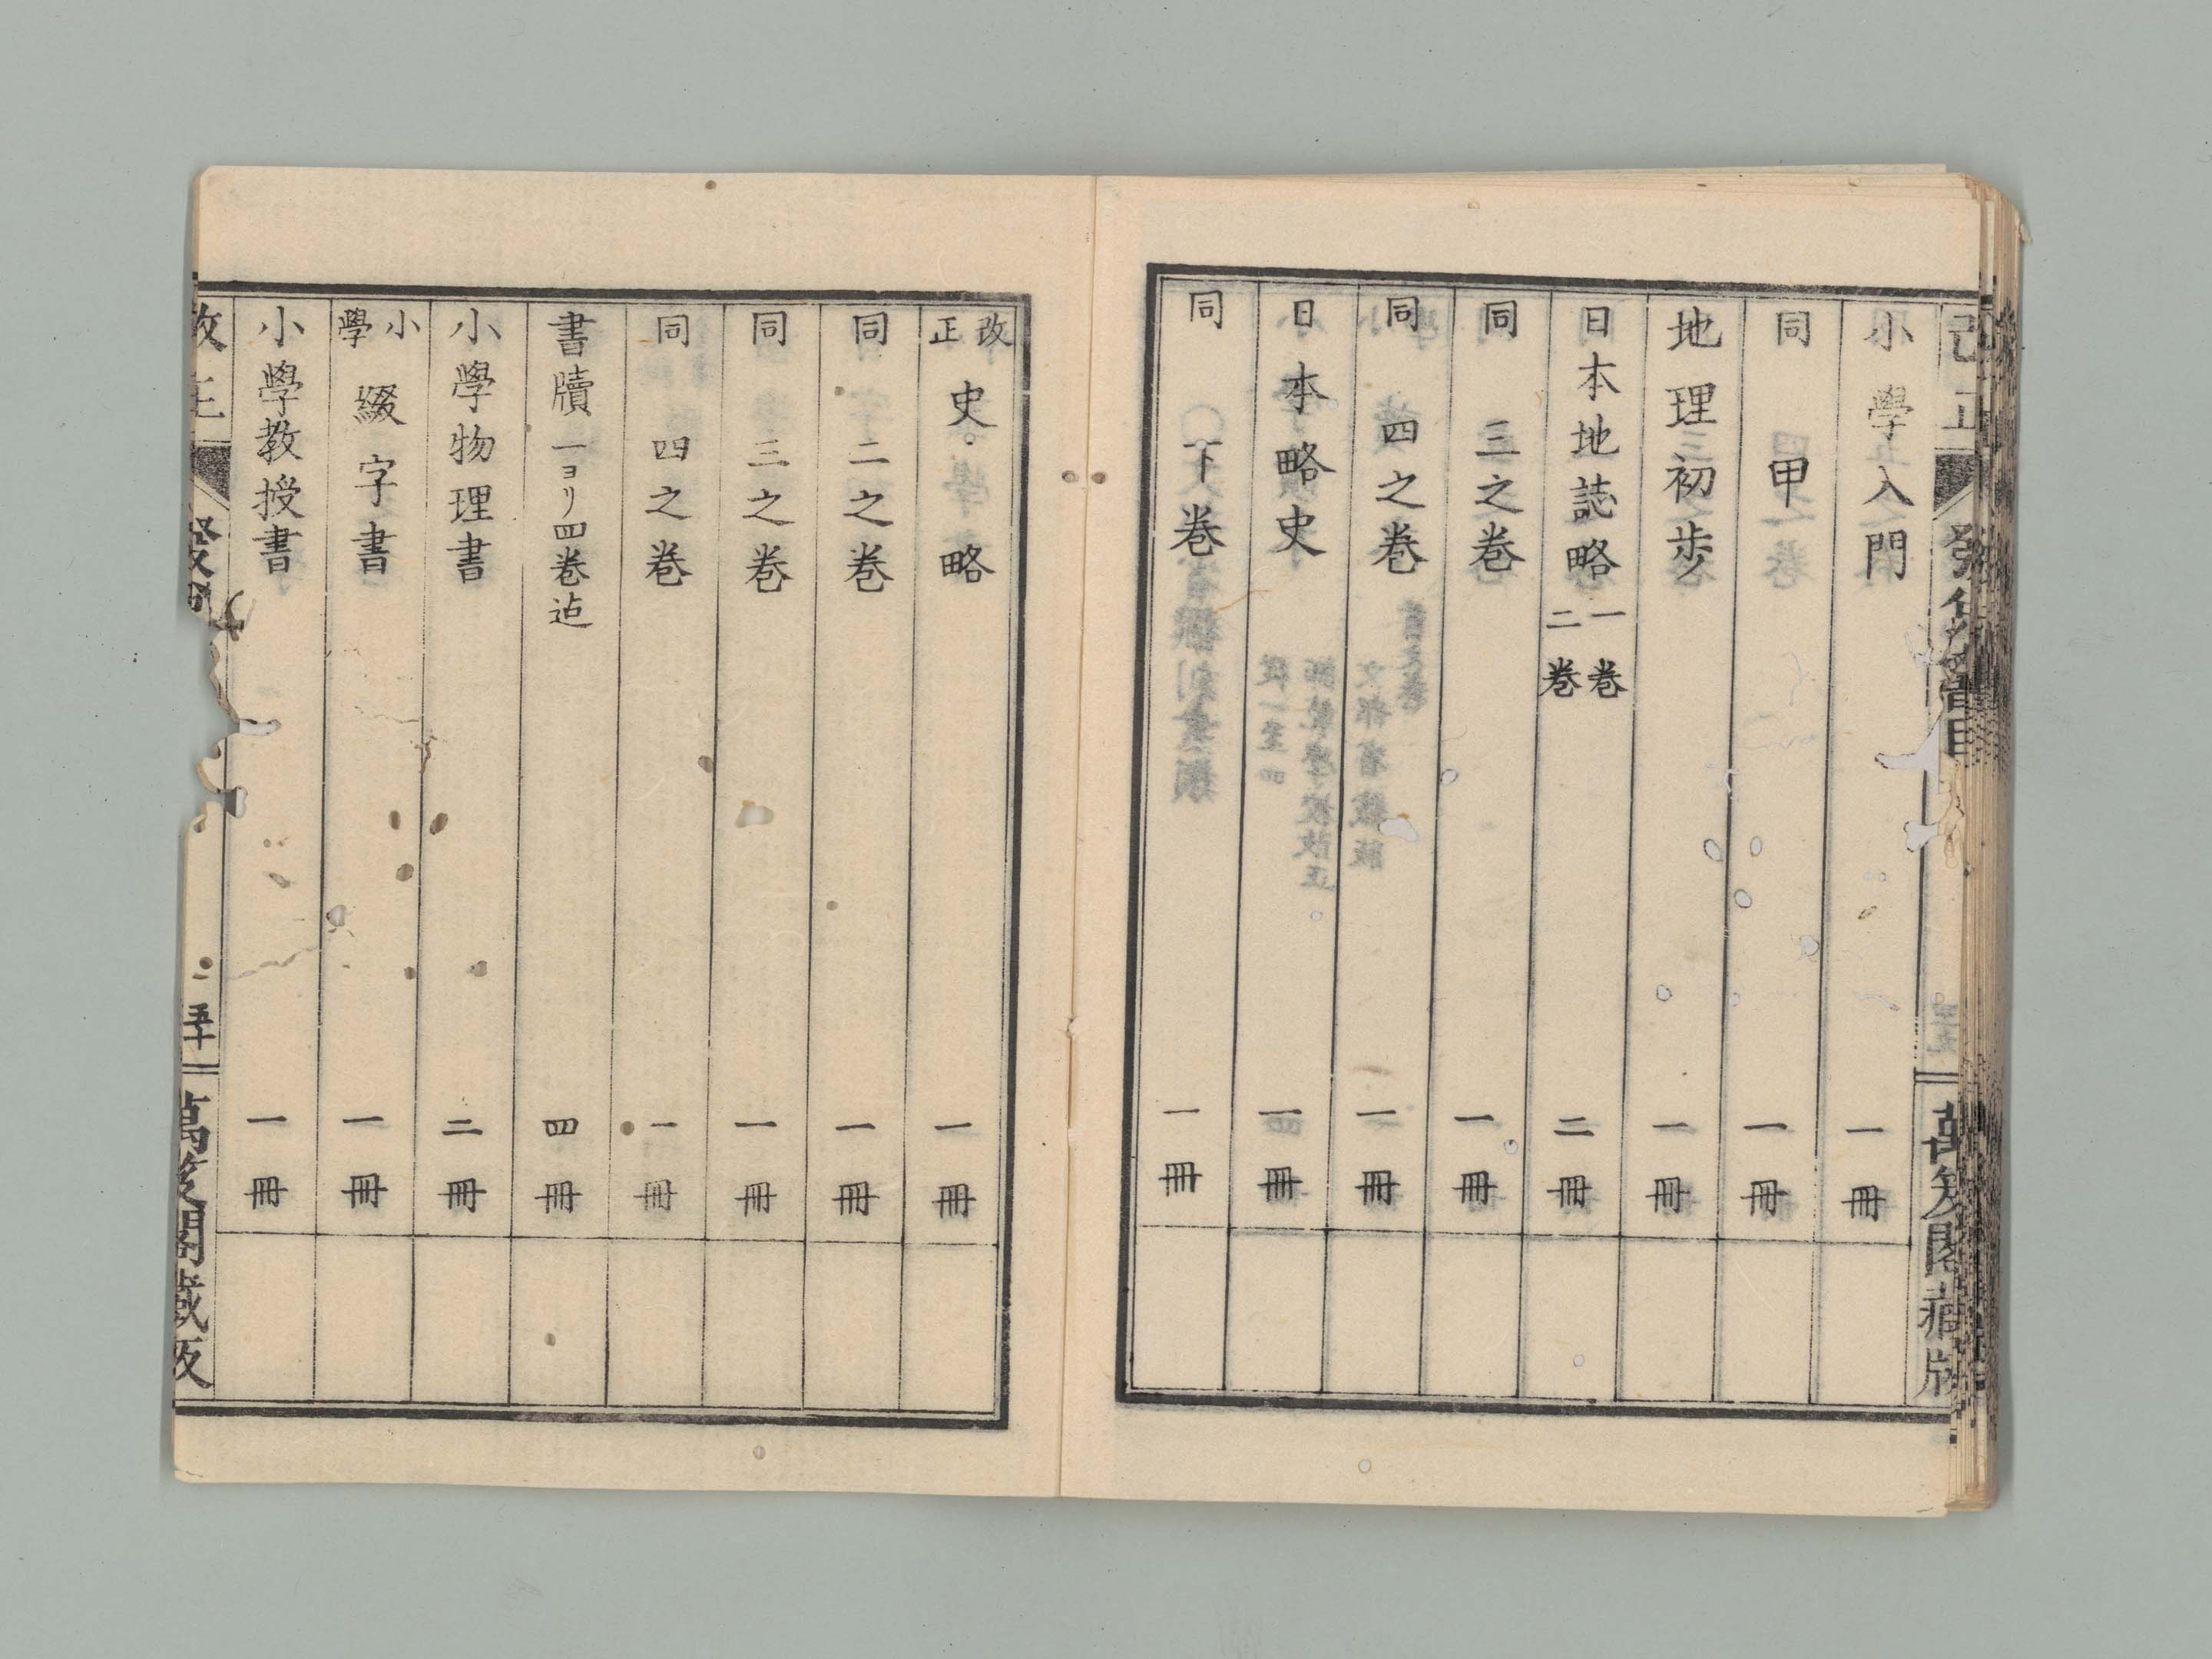 小學入門 一冊
同 甲 一冊
地理初歩 一冊
日本地誌略 一巻 二巻 二冊
同 三之巻 一冊
同 四之巻 一冊
日本略史 一冊
同 下巻 一冊
改正 史略 一冊
同 二之巻 一冊
同 三之巻 一冊
同 四之巻 一冊
書牘 一ヨリ四巻迠 四冊
小學物理書 二冊
小學 綴字書 一冊
小學教授書 一冊
萬笈閣蔵板